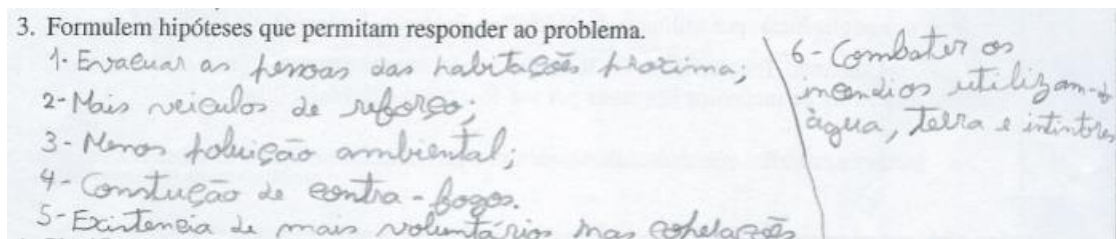 3. Formulem hipóteses que permitam responder ao problema.
1- Evacuar as pessoas das habitações próxima;
2- Mais veiculos de reforço;
3- Menos poluição ambiental;
4- Constução de contra-fogos.
5- Existencia de mais voluntários nas
6- Combater os
incendios utilizam-d
àgua, terra e intintores